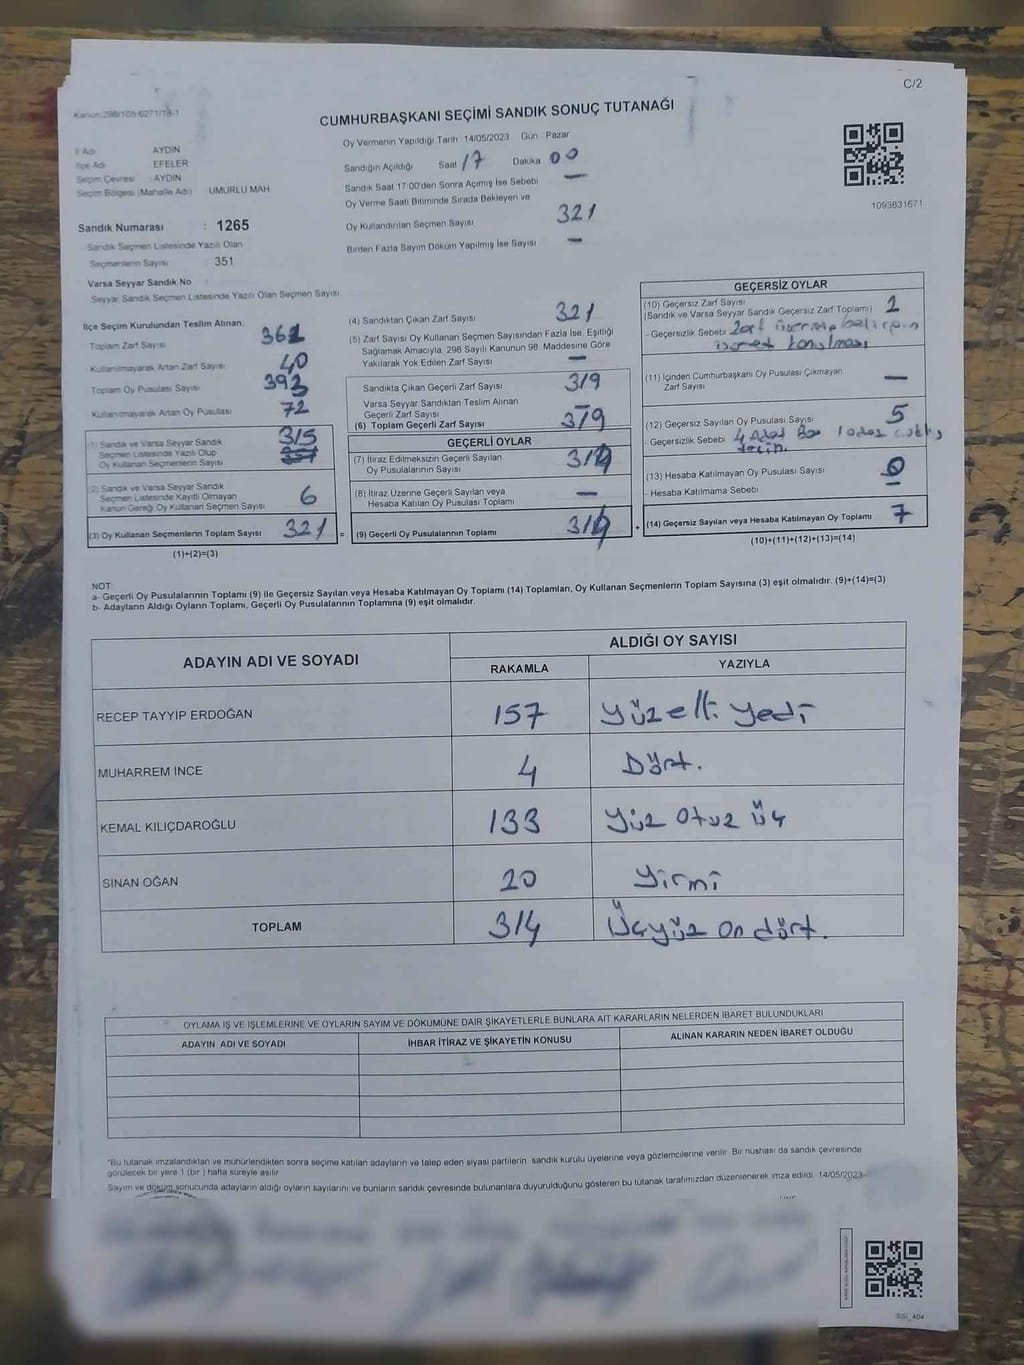 C/2
Kanun:298/105:6271/18-1
CUMHURBAŞKANI SEÇİMİ SANDIK SONUÇ TUTANAĞI
İl Adı AYDIN
İlçe Adı EFELER
Seçim Çevresi : AYDIN
Seçim Bölgesi (Mahalle Adı) UMURLU MAH
Sandık Numarası : 1265
Sandık Seçmen Listesinde Yazılı Olan
Seçmenlerin Sayısı : 351
Varsa Seyyar Sandık No
Seyyar Sandık Seçmen Listesinde Yazılı Olan Seçmen Sayısı
Oy Vermenin Yapıldığı Tarih 14/05/2023 Gün Pazar
Sandığın Açıldığı Saat 17 Dakika 00
Sandık Saat 17:00'den Sonra Açımış İse Sebebi —
Oy Verme Saati Bitiminde Sırada Bekleyen ve
Oy Kullandırılan Seçmen Sayısı 321
Birden Fazla Sayım Döküm Yapılmış İse Sayısı —
1093831671
İlçe Seçim Kurulundan Teslim Alınan:
Toplam Zarf Sayısı 361
Kullanılmayarak Artan Zarf Sayısı 40
Toplam Oy Pusulası Sayısı 393
Kullanılmayarak Artan Oy Pusulası 72
(1) Sandık ve Varsa Seyyar Sandık
Seçmen Listesinde Yazılı Olup
Oy Kullanan Seçmenlerin Sayısı 315
(2) Sandık ve Varsa Seyyar Sandık
Seçmen Listesinde Kayıtlı Olmayan
Kanun Gereği Oy Kullanan Seçmen Sayısı 6
(3) Oy Kullanan Seçmenlerin Toplam Sayısı 321 =
(1)+(2)=(3)
(4) Sandıktan Çıkan Zarf Sayısı 321
(5) Zarf Sayısı Oy Kullanan Seçmen Sayısından Fazla İse, Eşitliği
Sağlamak Amacıyla, 298 Sayılı Kanunun 98 Maddesine Göre
Yakılarak Yok Edilen Zarf Sayısı —
Sandıkta Çıkan Geçerli Zarf Sayısı 319
Varsa Seyyar Sandıktan Teslim Alınan
Geçerli Zarf Sayısı —
(6) Toplam Geçerli Zarf Sayısı 319
GEÇERLİ OYLAR
(7) İtiraz Edilmeksizin Geçerli Sayılan
Oy Pusulalarının Sayısı 314
(8) İtiraz Üzerine Geçerli Sayılan veya
Hesaba Katılan Oy Pusulası Toplamı —
(9) Geçerli Oy Pusulalarının Toplamı 314 +
GEÇERSİZ OYLAR
(10) Geçersiz Zarf Sayısı
(Sandık ve Varsa Seyyar Sandık Geçersiz Zarf Toplamı) 2
- Geçersizlik Sebebi Zarf üzerine
işaret konulması
(11) İçinden Cumhurbaşkanı Oy Pusulası Çıkmayan
Zarf Sayısı —
(12) Geçersiz Sayılan Oy Pusulası Sayısı 5
- Geçersizlik Sebebi 4 Adet Boş 1 adet
(13) Hesaba Katılmayan Oy Pusulası Sayısı 0
- Hesaba Katılmama Sebebi —
(14) Geçersiz Sayılan veya Hesaba Katılmayan Oy Toplamı 7
(10)+(11)+(12)+(13)=(14)
NOT:
a- Geçerli Oy Pusulalarının Toplamı (9) ile Geçersiz Sayılan veya Hesaba Katılmayan Oy Toplamı (14) Toplamları, Oy Kullanan Seçmenlerin Toplam Sayısına (3) eşit olmalıdır. (9)+(14)=(3)
b- Adayların Aldığı Oyların Toplamı, Geçerli Oy Pusulalarının Toplamına (9) eşit olmalıdır.
ADAYIN ADI VE SOYADI
ALDIĞI OY SAYISI
RAKAMLA YAZIYLA
RECEP TAYYİP ERDOĞAN 157 Yüzelli yedi
MUHARREM İNCE 4 Dört.
KEMAL KILIÇDAROĞLU 133 Yüz Otuz üç
SİNAN OĞAN 20 Yirmi
TOPLAM 314 Üçyüz on dört.
OYLAMA İŞ VE İŞLEMLERİNE VE OYLARIN SAYIM VE DÖKÜMÜNE DAİR ŞİKAYETLERLE BUNLARA AİT KARARLARIN NELERDEN İBARET BULUNDUKLARI
ADAYIN ADI VE SOYADI İHBAR İTİRAZ VE ŞİKAYETİN KONUSU ALINAN KARARIN NEDEN İBARET OLDUĞU
*Bu tutanak imzalandıktan ve mühürlendikten sonra seçime katılan adayların ve talep eden siyasi partilerin sandık kurulu üyelerine veya gözlemcilerine verilir. Bir nüshası da sandık çevresinde
görülecek bir yere 1 (bir ) hafta süreyle asılır
Sayım ve döküm sonucunda adayların aldığı oyların sayılarını ve bunların sandık çevresinde bulunanlara duyurulduğunu gösteren bu tutanak tarafımızdan düzenlenerek imza edildi. 14/05/2023
SSI_404